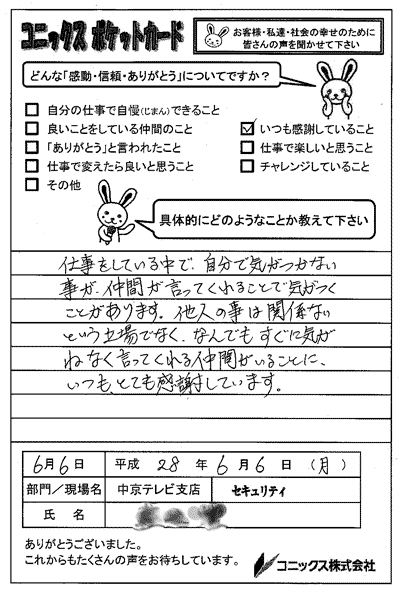 コニックス ポケットカード
お客様・私達・社会の幸せのために
皆さんの声を聞かせて下さい
どんな「感動・信頼・ありがとう」についてですか?
□ 自分の仕事で自慢(じまん)できること
□ 良いことをしている仲間のこと
☑ いつも感謝していること
□ 「ありがとう」と言われたこと
□ 仕事で楽しいと思うこと
□ 仕事で変えたら良いと思うこと
□ チャレンジしていること
□ その他
具体的にどのようなことか教えて下さい
仕事をしている中で、自分で気がつかない
事が、仲間が言ってくれることで気がつく
ことがあります。他人の事は関係ない
という立場でなく、なんでもすぐに気が
ねなく言ってくれる仲間がいることに、
いつも、とても感謝しています。
6月6日 平成 28 年 6 月 6 日 (月)
部門/現場名 中京テレビ支店 セキュリティ
氏 名
ありがとうございました。
これからもたくさんの声をお待ちしています。
コニックス株式会社